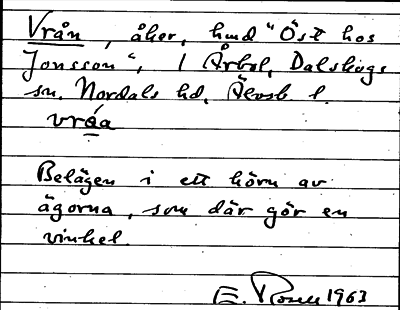 Vrån, åker, hmd "Öst hos
Jonsson", 1 Årbol, Dalskogs
sn. Nordals hd, Älvsb l.
vráa
Belägen i ett hörn av
ägorna, som där gör en
vinkel.
E. Rosell 1963